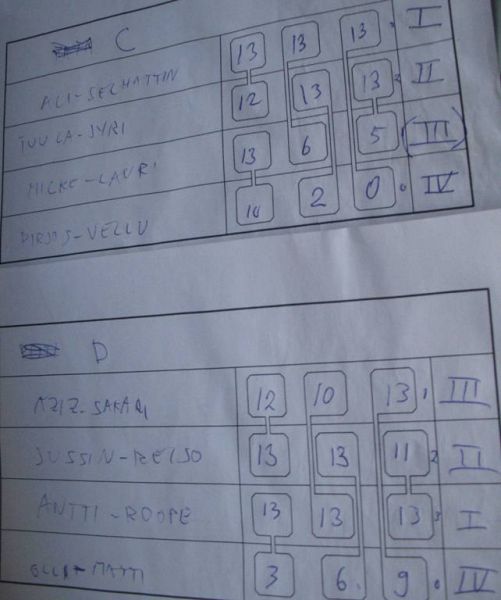 C
ALI-SELHATTIN 13 13 13 I
TUULA-JYRI 12 13 13 2 II
MICKE-LAURI 13 6 5 (III)
PIRJOS-VELLU 10 2 0 0 IV
D
AZIZ-SAKARI 12 10 13 1 III
JUSSIN-REIJO 13 13 11 2 II
ANTTI-ROOPE 13 13 13 3 I
OLLI-MATTI 3 6 9 0 IV